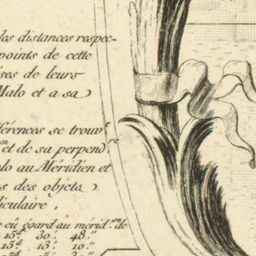 les distances respec-
points de cette
ses de leurs
Malo et a sa
férences se trouv
et de sa perpend
lo au Méridien et
s des objets
diculaire,
eû égard au mérid. de
15.d 30.' 48."
15.d 13.' 10."